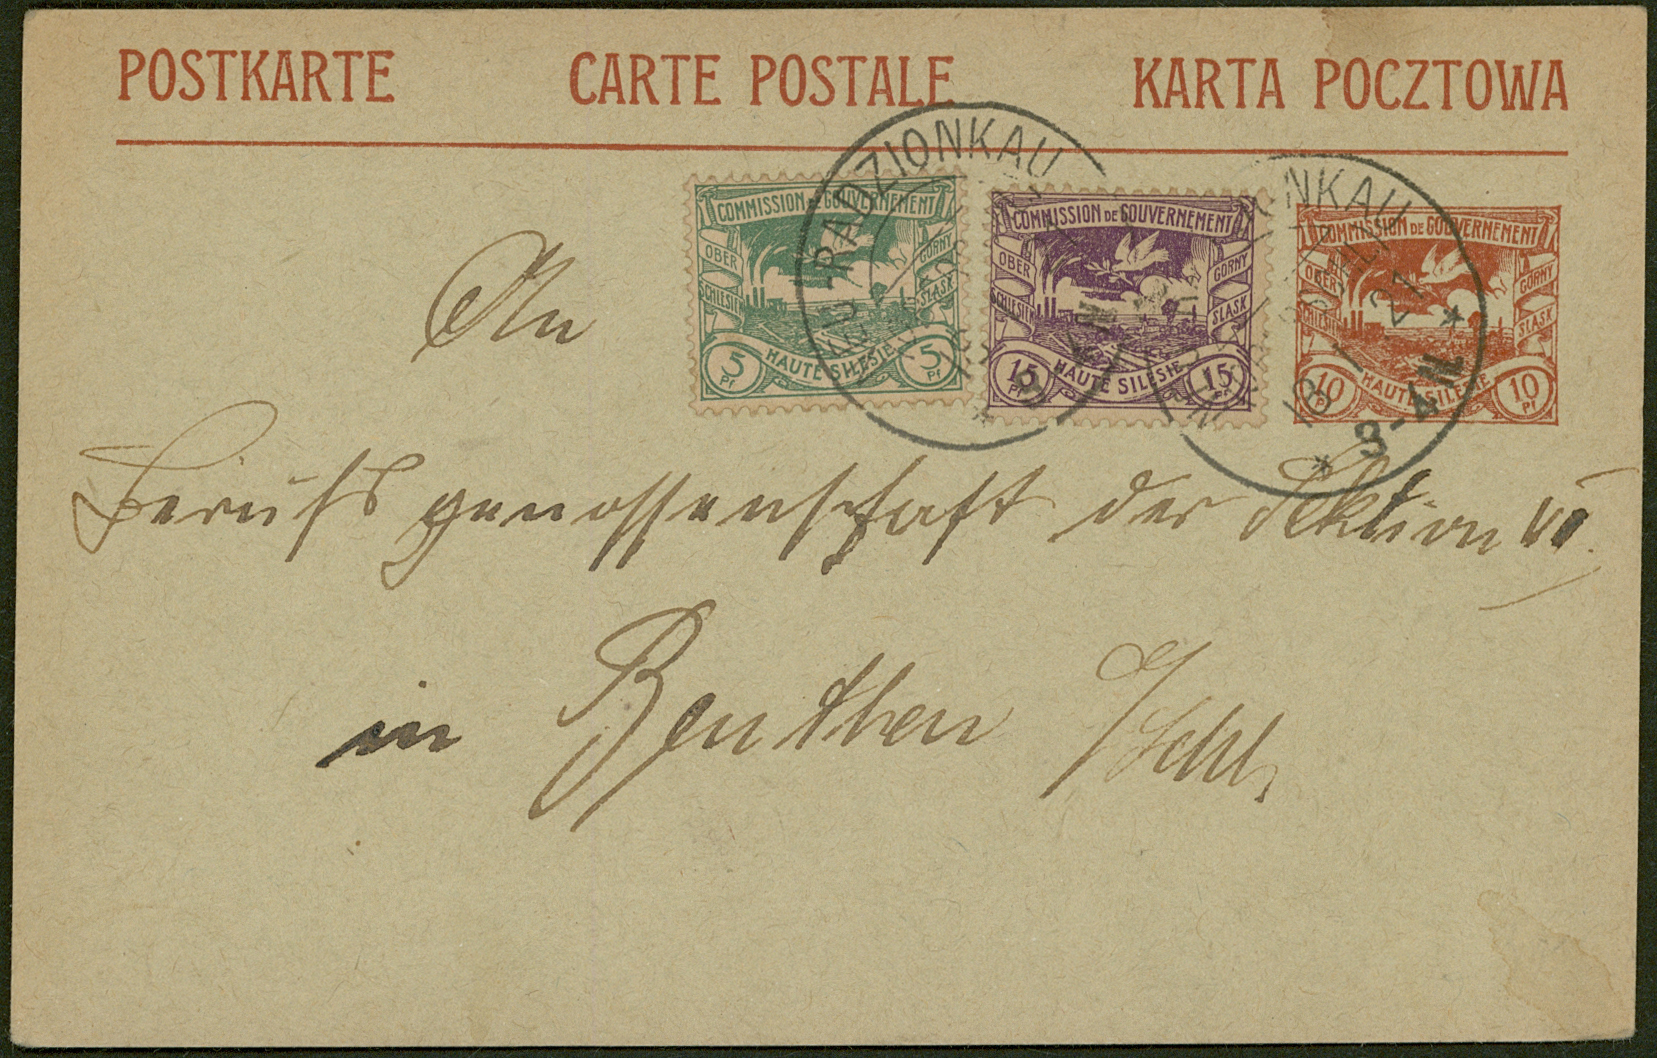 POSTKARTE CARTE POSTALE KARTA POCZTOWA
COMMISSION DE GOUVERNEMENT
OBER SCHLESIEN GÓRNY ŚLĄSK
5 Pf HAUTE SILESIE 5
COMMISSION DE GOUVERNEMENT
OBER SCHLESIEN GÓRNY ŚLĄSK
15 Pf HAUTE SILESIE 15 Pf
COMMISSION DE GOUVERNEMENT
OBER SCHLESIEN GÓRNY ŚLĄSK
10 Pf HAUTE SILESIE 10 Pf
NEU-RADZIONKAU
NKAU
18 1 21
3-4 N
An
Berufsgenossenschaft der Sektion VI.
in Beuthen O/Schl.